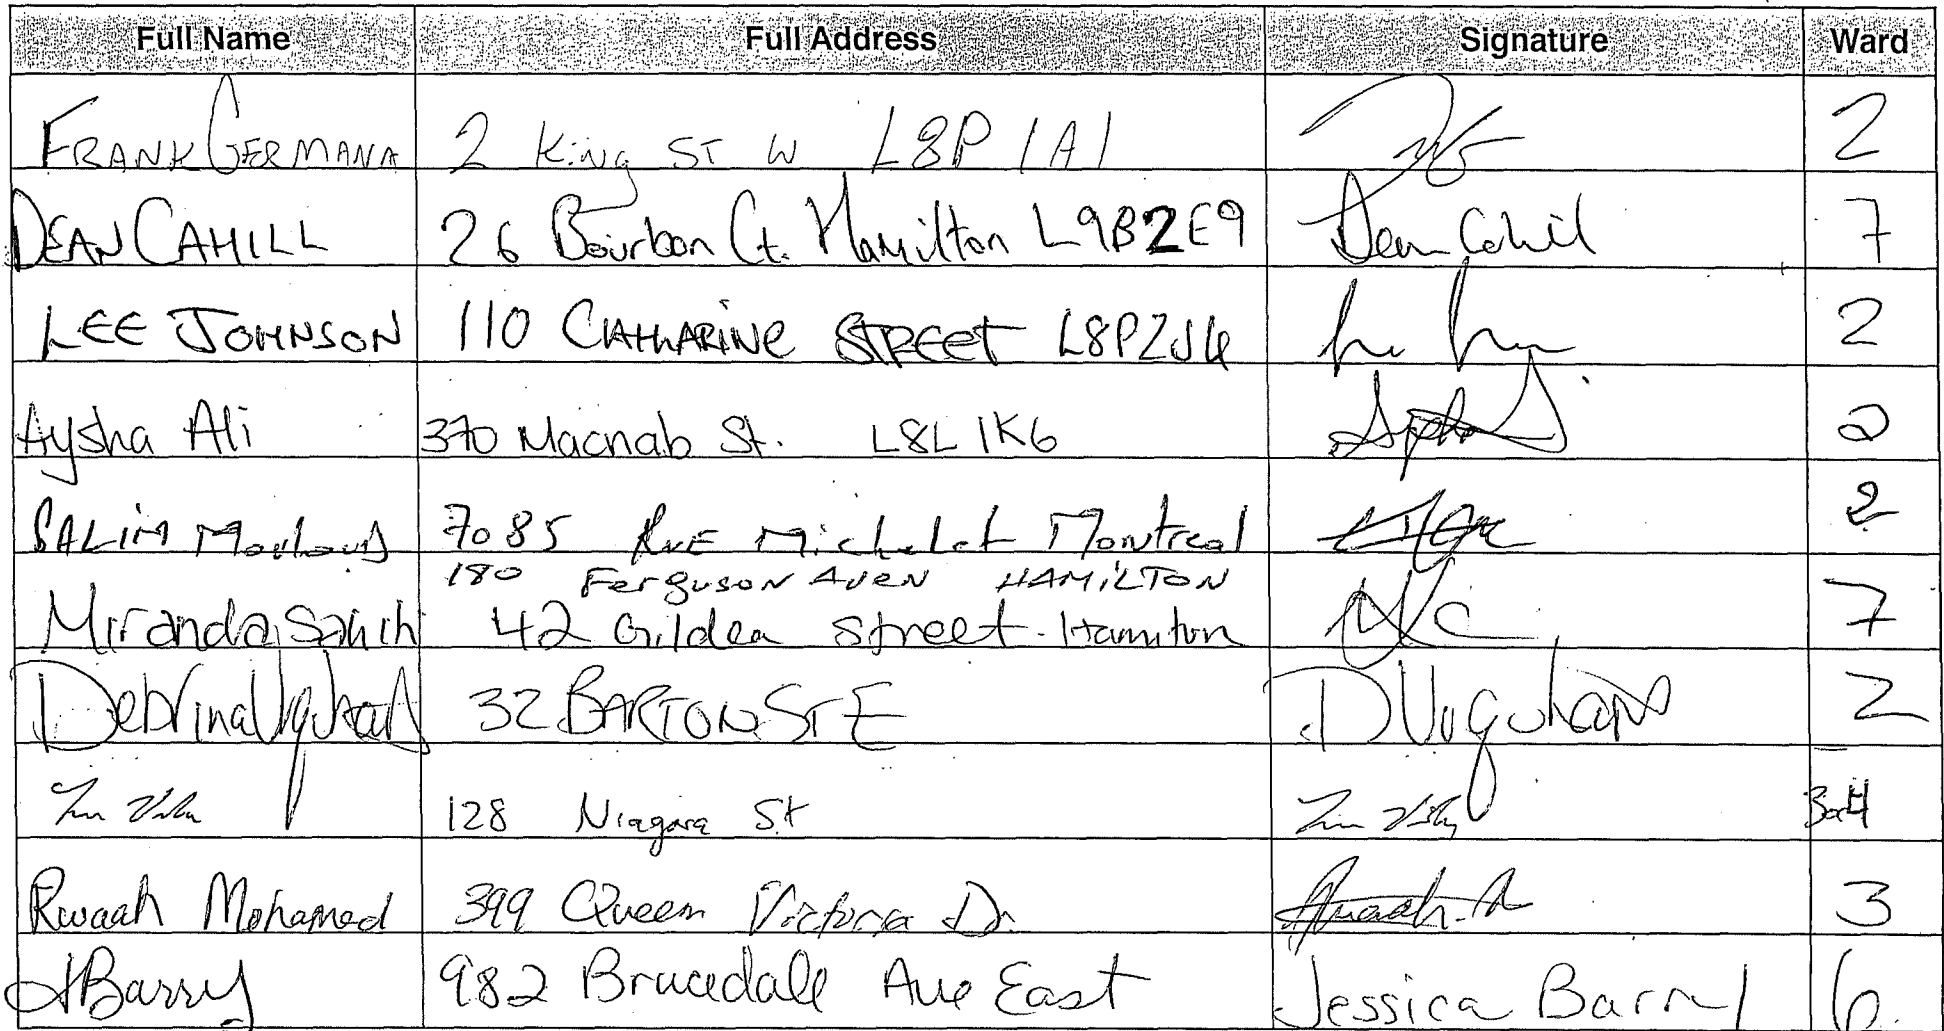 Full Name Full Address Signature Ward
FRANK GERMANA 2 King ST W L8P 1A1 2
DEAN CAHILL 26 Bourbon Ct. Hamilton L9B2E9 Dean Cahill 7
LEE JOHNSON 110 CATHARINE STREET L8P2J4 2
Aysha Ali 370 Macnab St. L8L 1K6 2
SALIM 7085 RUE Michelet Montreal 2
180 Ferguson AVEN HAMILTON
Miranda 42 Gildea Street. Hamilton 7
Debrina 32 BARTON ST E 2
128 Niagara St 3or4
Rwaah Mohamed 399 Queen Victoria Dr. 3
JBarry 982 Brucedale Ave East Jessica Barry 6